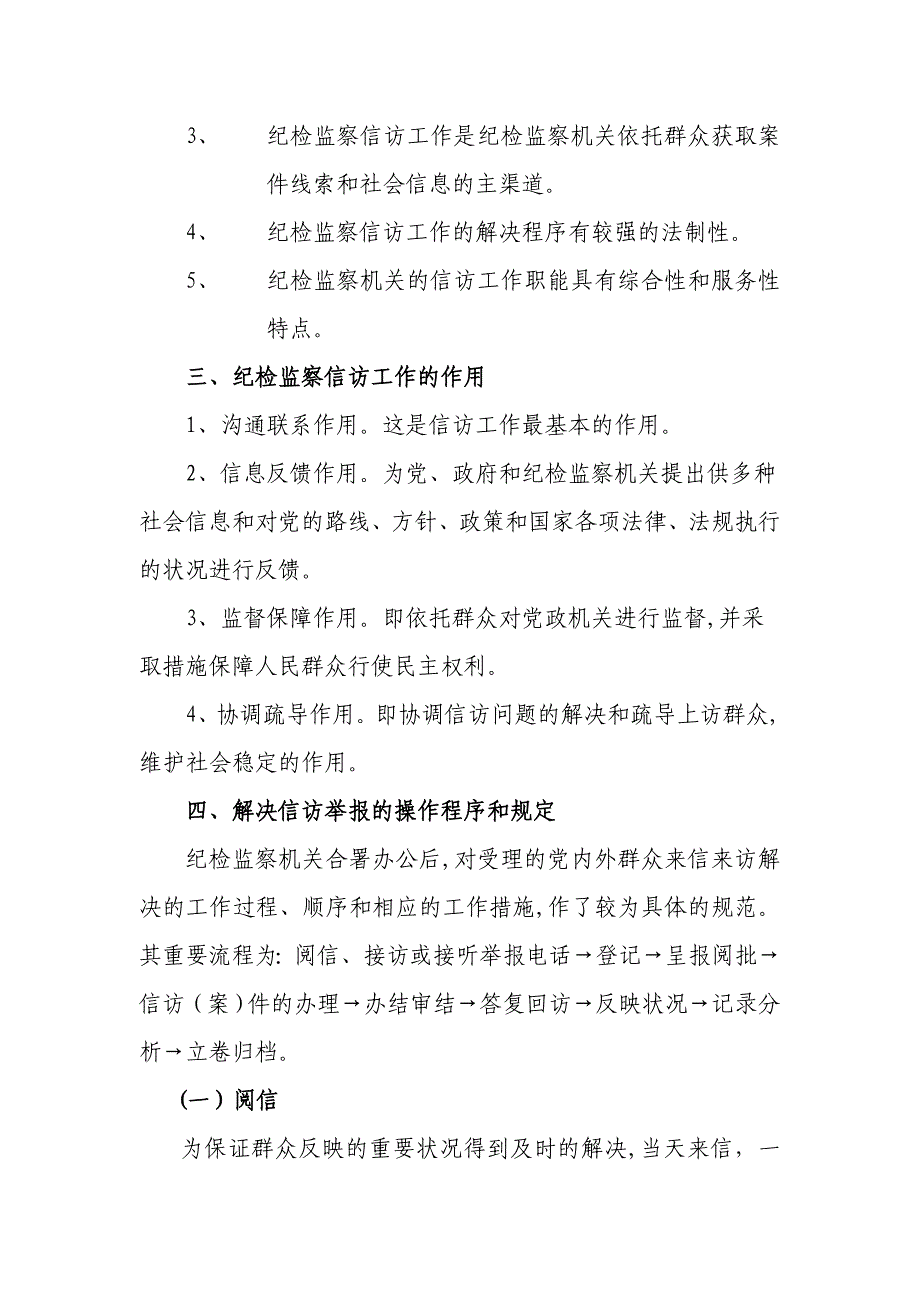 3、 纪检监察信访工作是纪检监察机关依托群众获取案
件线索和社会信息的主渠道。
4、 纪检监察信访工作的解决程序有较强的法制性。
5、 纪检监察机关的信访工作职能具有综合性和服务性
特点。
三、纪检监察信访工作的作用
1、沟通联系作用。这是信访工作最基本的作用。
2、信息反馈作用。为党、政府和纪检监察机关提出供多种
社会信息和对党的路线、方针、政策和国家各项法律、法规执行
的状况进行反馈。
3、监督保障作用。即依托群众对党政机关进行监督,并采
取措施保障人民群众行使民主权利。
4、协调疏导作用。即协调信访问题的解决和疏导上访群众,
维护社会稳定的作用。
四、解决信访举报的操作程序和规定
纪检监察机关合署办公后,对受理的党内外群众来信来访解
决的工作过程、顺序和相应的工作措施,作了较为具体的规范。
其重要流程为: 阅信、接访或接听举报电话→登记→呈报阅批→
信访（案）件的办理→办结审结→答复回访→反映状况→记录分
析→立卷归档。
(一）阅信
为保证群众反映的重要状况得到及时的解决,当天来信，一